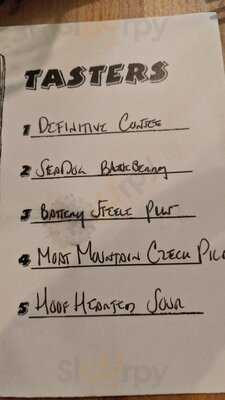 TASTERS
1 DEFINITIVE CONTEE
2 SEADOG BLUEBERRY
3 BATTERY STEELE PILS
4 MOAT MOUNTAIN CZECH PILS
5 HOOF HEARTED SOUR